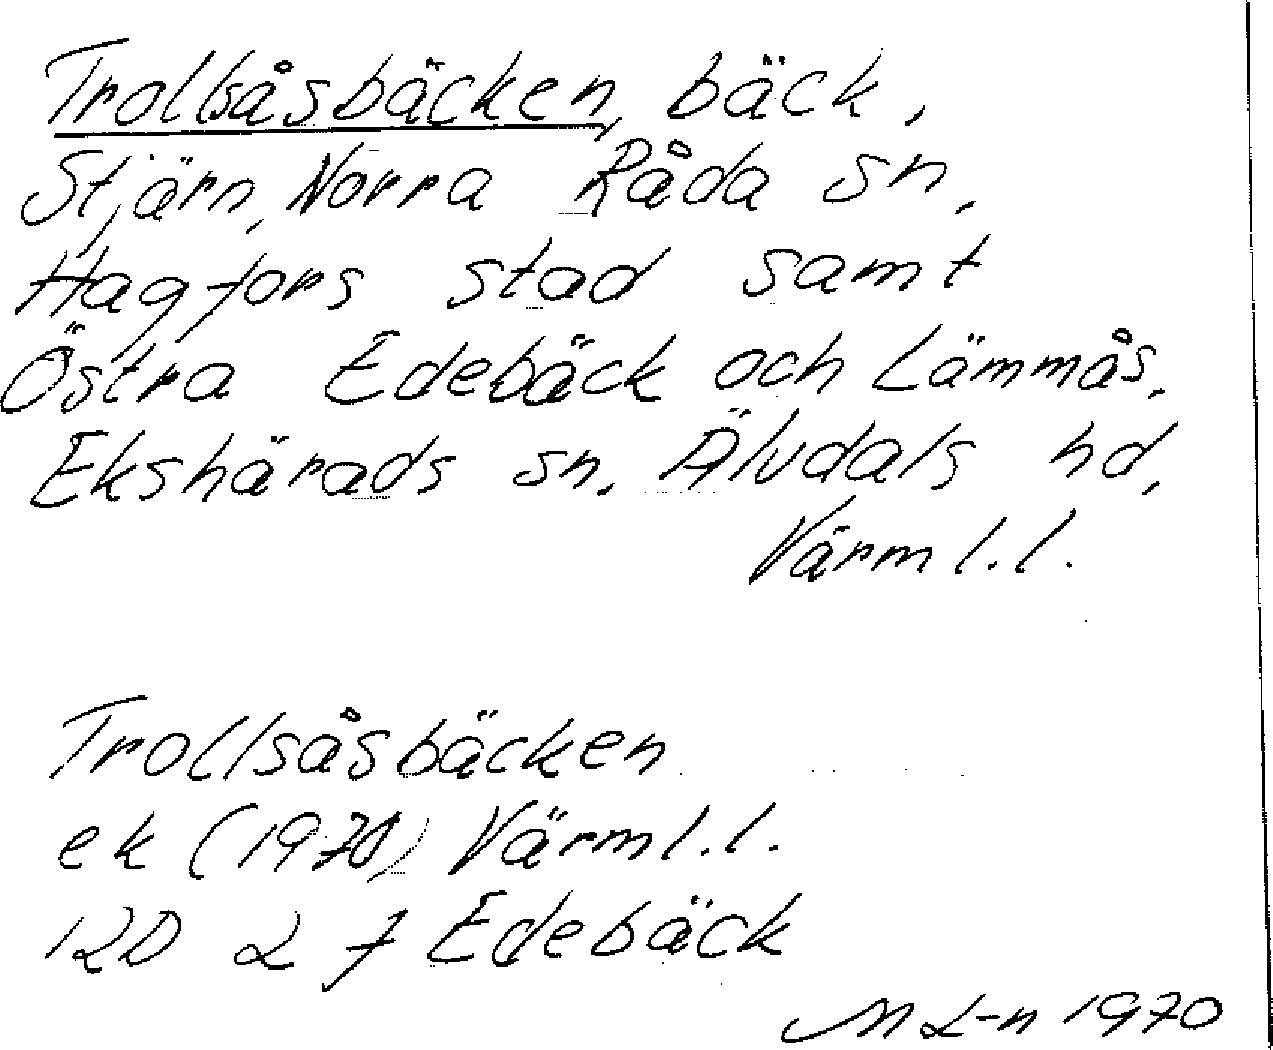 Trollsåsbäcken, bäck,
Stjärn, Norra Råda sn,
Hagfors stad samt
Östra Edebäck och Lämmås,
Ekshärads sn, Älvdals hd,
Värml.l.
Trollsåsbäcken
ek (1970) Värml.l.
12D 2 f Edebäck
M L-n 1970